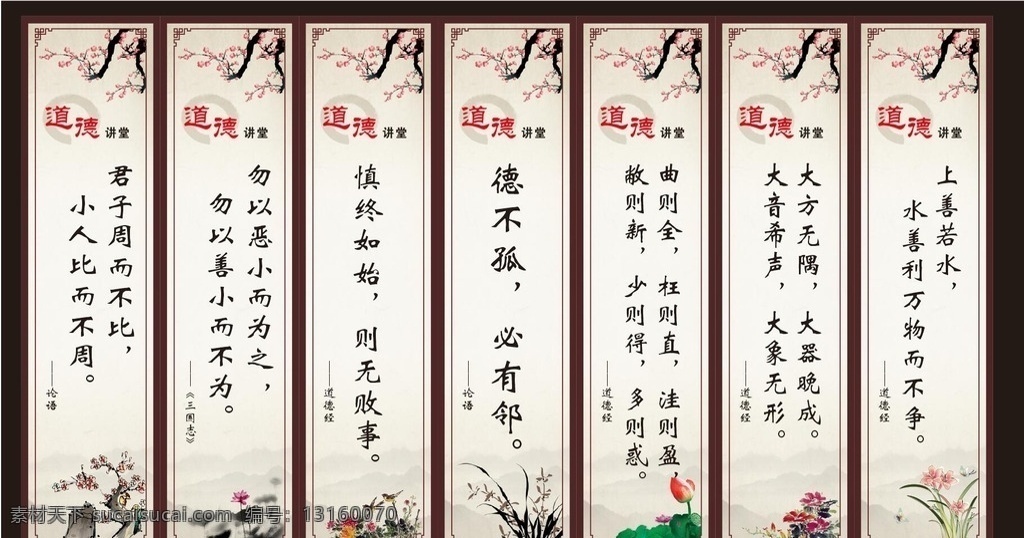 道德讲堂
君子周而不比，
小人比而不周。
——论语
道德讲堂
勿以恶小而为之，
勿以善小而不为。
——《三国志》
道德讲堂
慎终如始，则无败事。
——道德经
道德讲堂
德不孤，必有邻。
——论语
道德讲堂
曲则全，枉则直，洼则盈，
敝则新，少则得，多则惑。
——道德经
道德讲堂
大方无隅，大器晚成。
大音希声，大象无形。
——道德经
道德讲堂
上善若水，
水善利万物而不争。
——道德经
素材天下 sucaisucai.com 编号：13160070